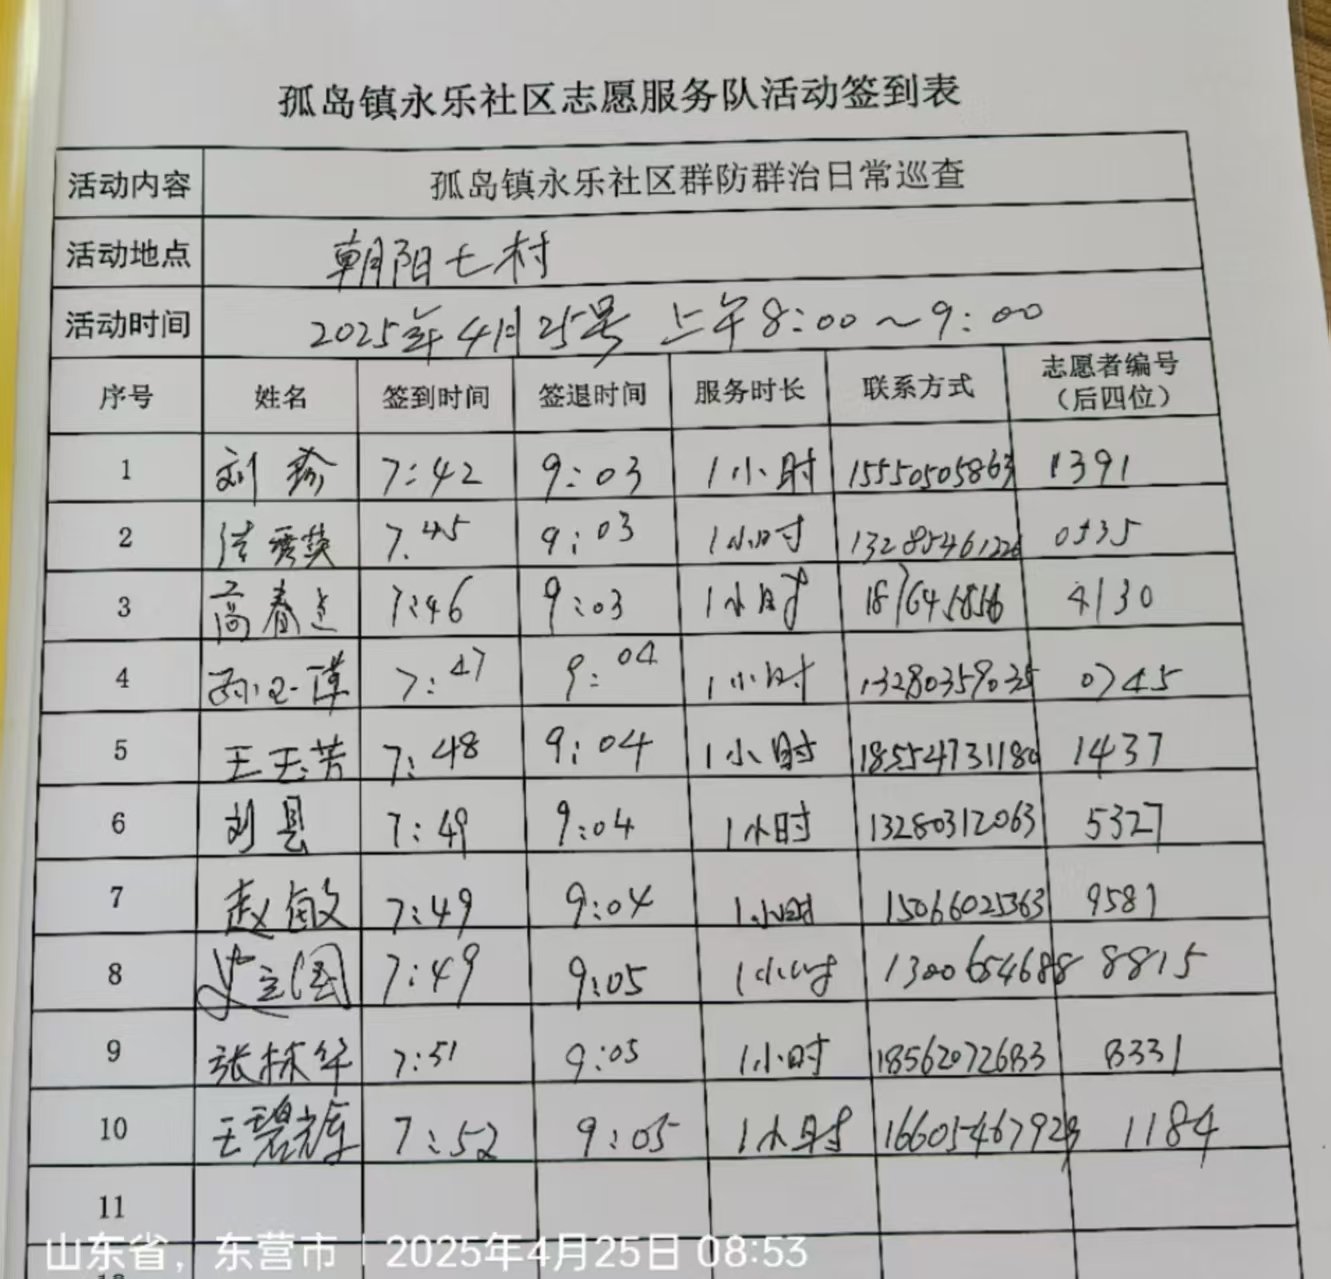 孤岛镇永乐社区志愿服务队活动签到表
活动内容 孤岛镇永乐社区群防群治日常巡查
活动地点 朝阳七村
活动时间 2025年4月25号 上午8:00～9:00
序号 姓名 签到时间 签退时间 服务时长 联系方式 志愿者编号（后四位）
1 刘珍 7:42 9:03 1小时 15550505863 1391
2 7.45 9:03 1小时 13285461226 0535
3 高春 7:46 9:03 1小时 4130
4 7:47 9:04 1小时 13280359035 0745
5 王玉芳 7:48 9:04 1小时 18554731180 1437
6 刘县 7:49 9:04 1小时 13280312063 5327
7 赵敏 7:49 9:04 1小时 15066025363 9581
8 史立国 7:49 9:05 1小时 13006546888 8815
9 张林华 7:51 9:05 1小时 3331
10 王碧 7:52 9:05 1小时 1184
11
山东省，东营市 | 2025年4月25日 08:53